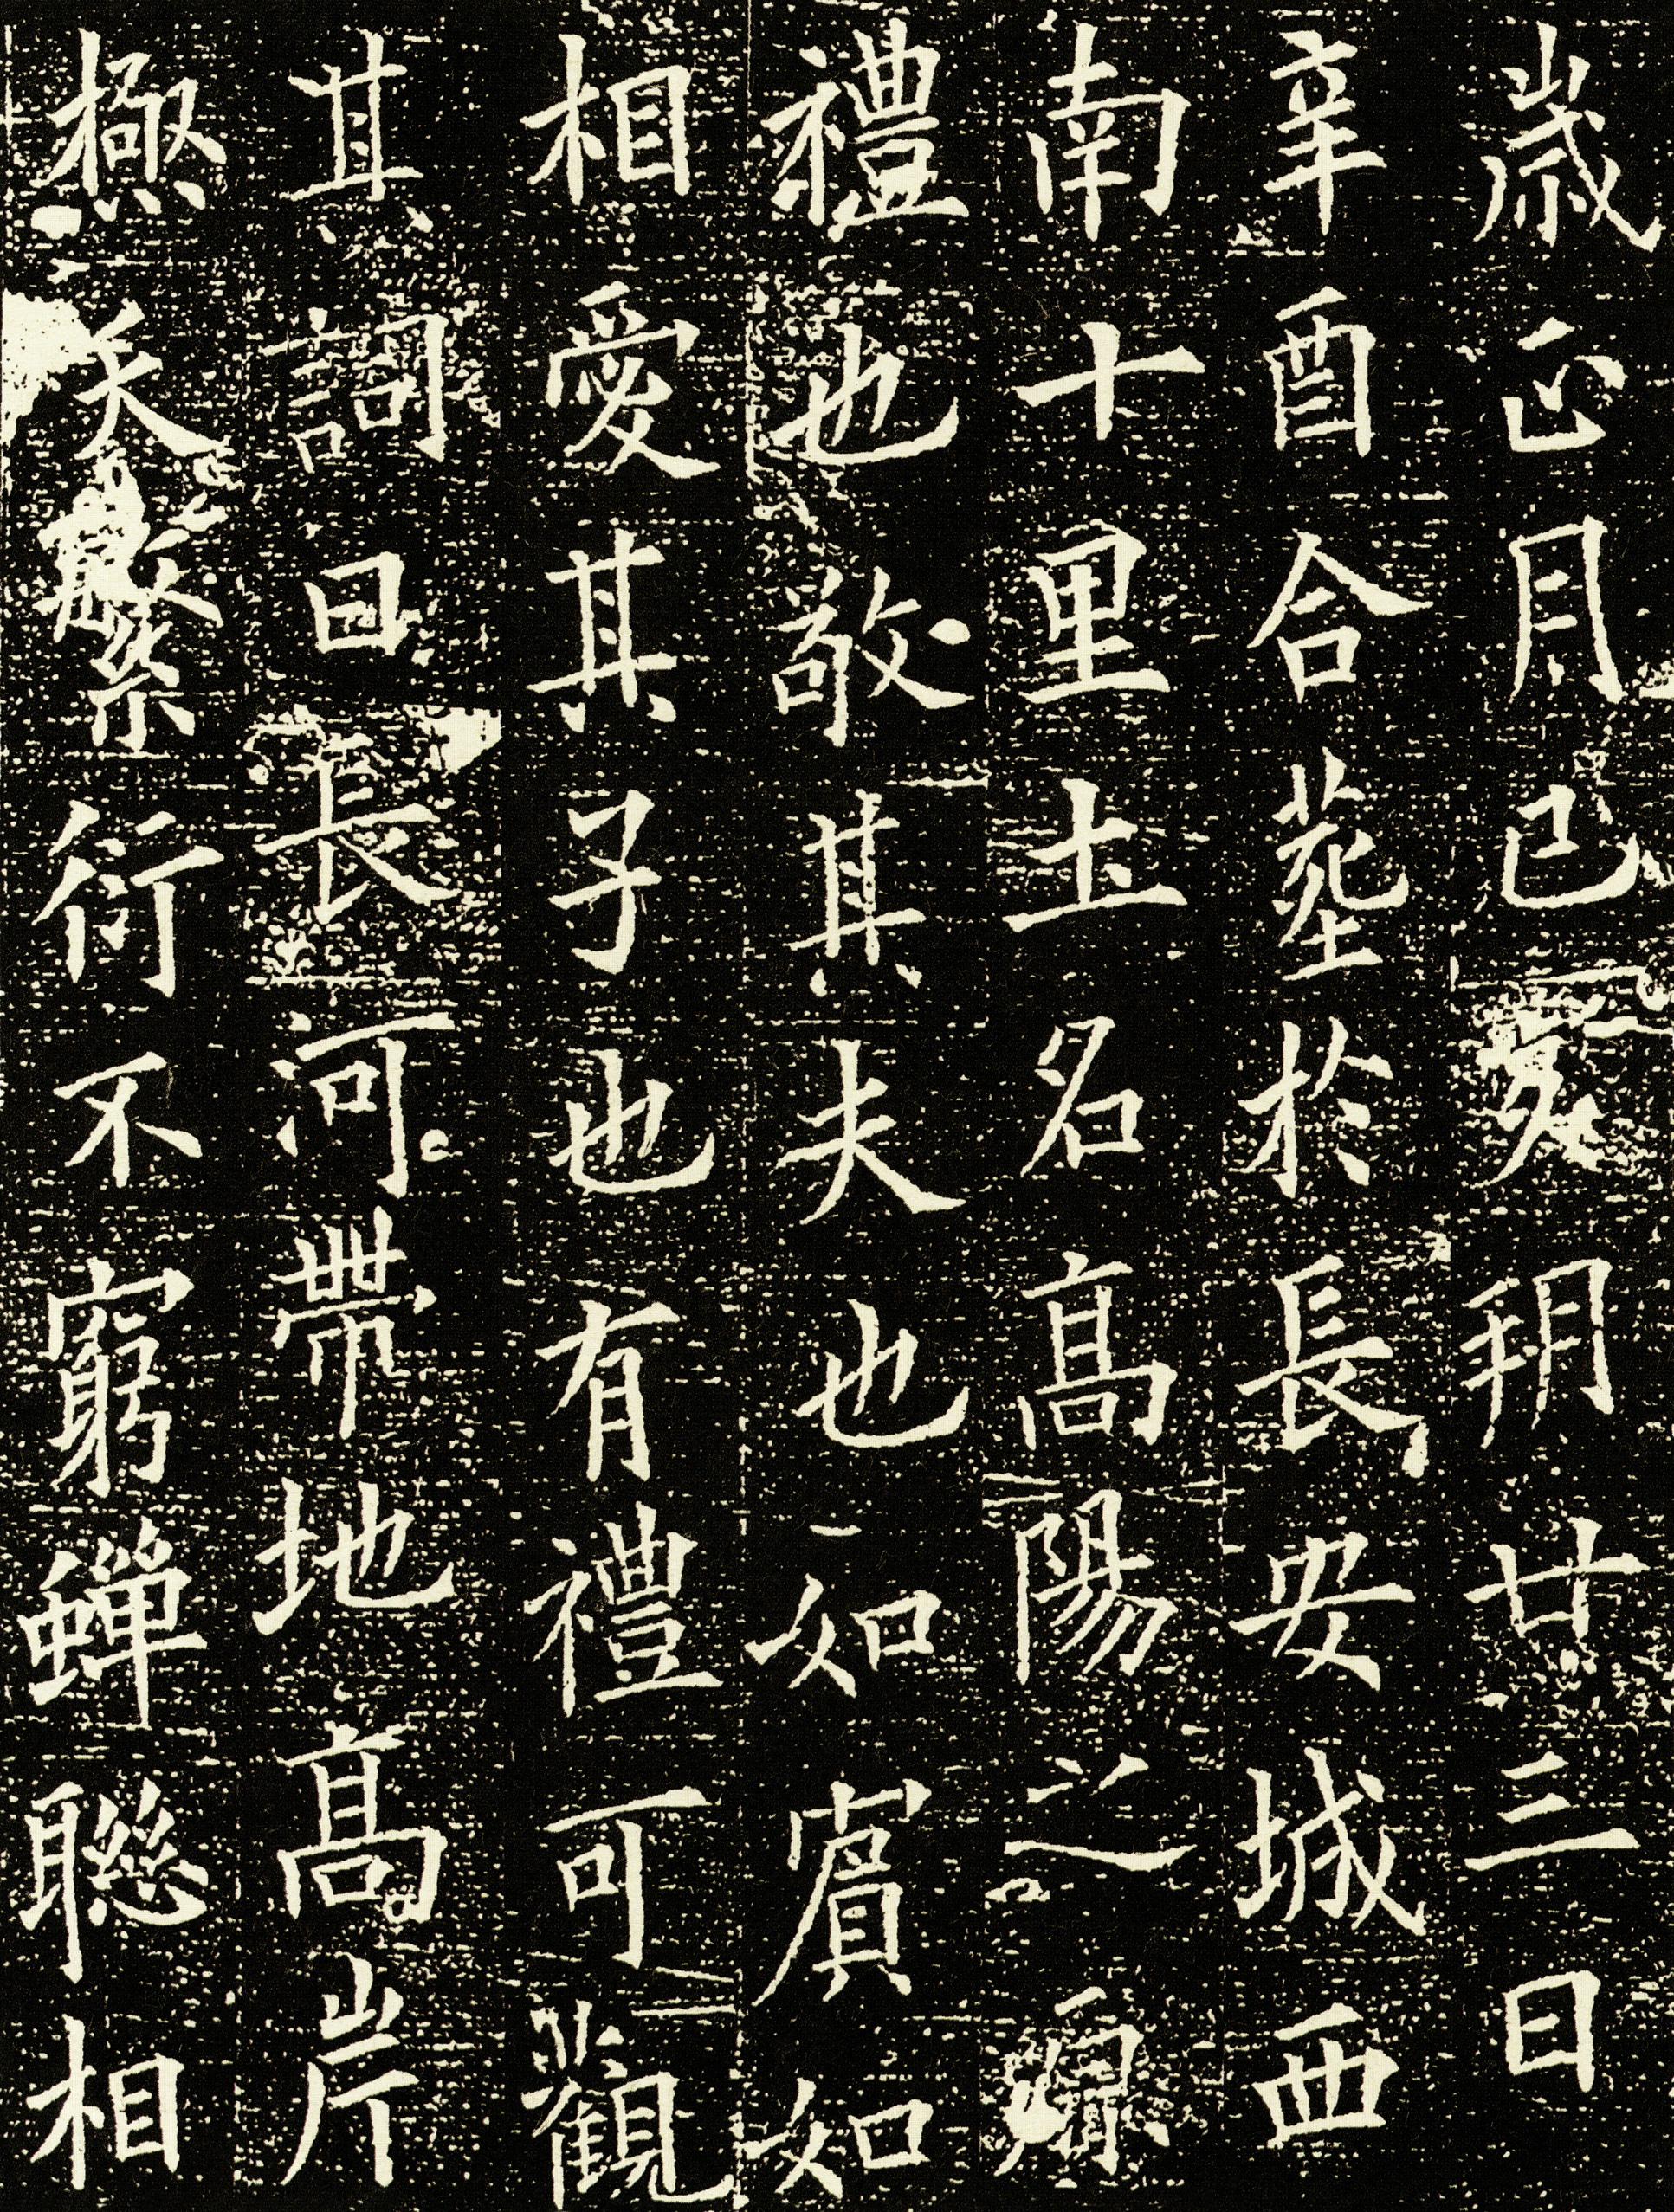 歲正月己亥朔廿三日
辛酉合塟於長安城西
南十里圡名髙陽之原
禮也敬其夫也如賓如
相愛其子也有禮可觀
其詞曰長河帶地髙岸
極天繁衍不窮蟬聯相